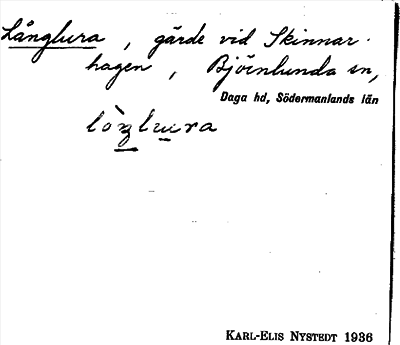 Långlura, gärde vid Skinnar-
hagen, Björnlunda sn,
Daga hd, Södermanlands län
KARL-ELIS NYSTEDT 1936